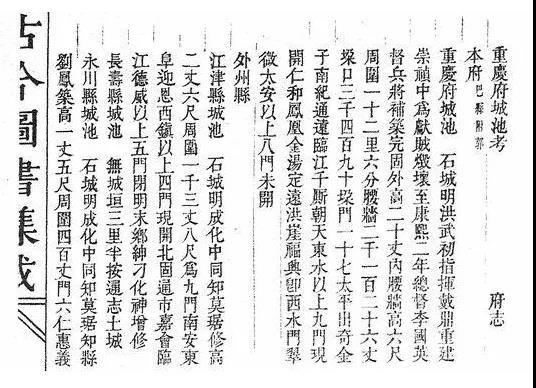 重慶府城池考　府志
本府 巴縣附郭
重慶府城池　石城明洪武初指揮戴鼎重建
崇禎中為獻賊燬壞至康熙二年總督李國英
督兵將補築完固外高二十丈內腰牆高六尺
周圍一十二里六分腰牆二千一百二十六丈
垜口三千四百九十垜門一十七太平出奇金
子南紀通遠臨江千厮朝天東水以上九門現
開仁和鳳凰金湯定遠洪崖福興卽西水門翠
微太安以上八門未開
外州縣
江津縣城池　石城明成化中同知莫琚修高
二丈六尺周圍一千三丈八尺為九門南安東
阜迎恩西鎮以上四門現開北固通市嘉會臨
江德威以上五門閉明末鄉紳刁化神增修
長壽縣城池　無城垣三里半按通志土城
永川縣城池　石城明成化中同知莫琚知縣
劉鳳築高一丈五尺周圍四百丈門六仁惠義
古今圖書集成